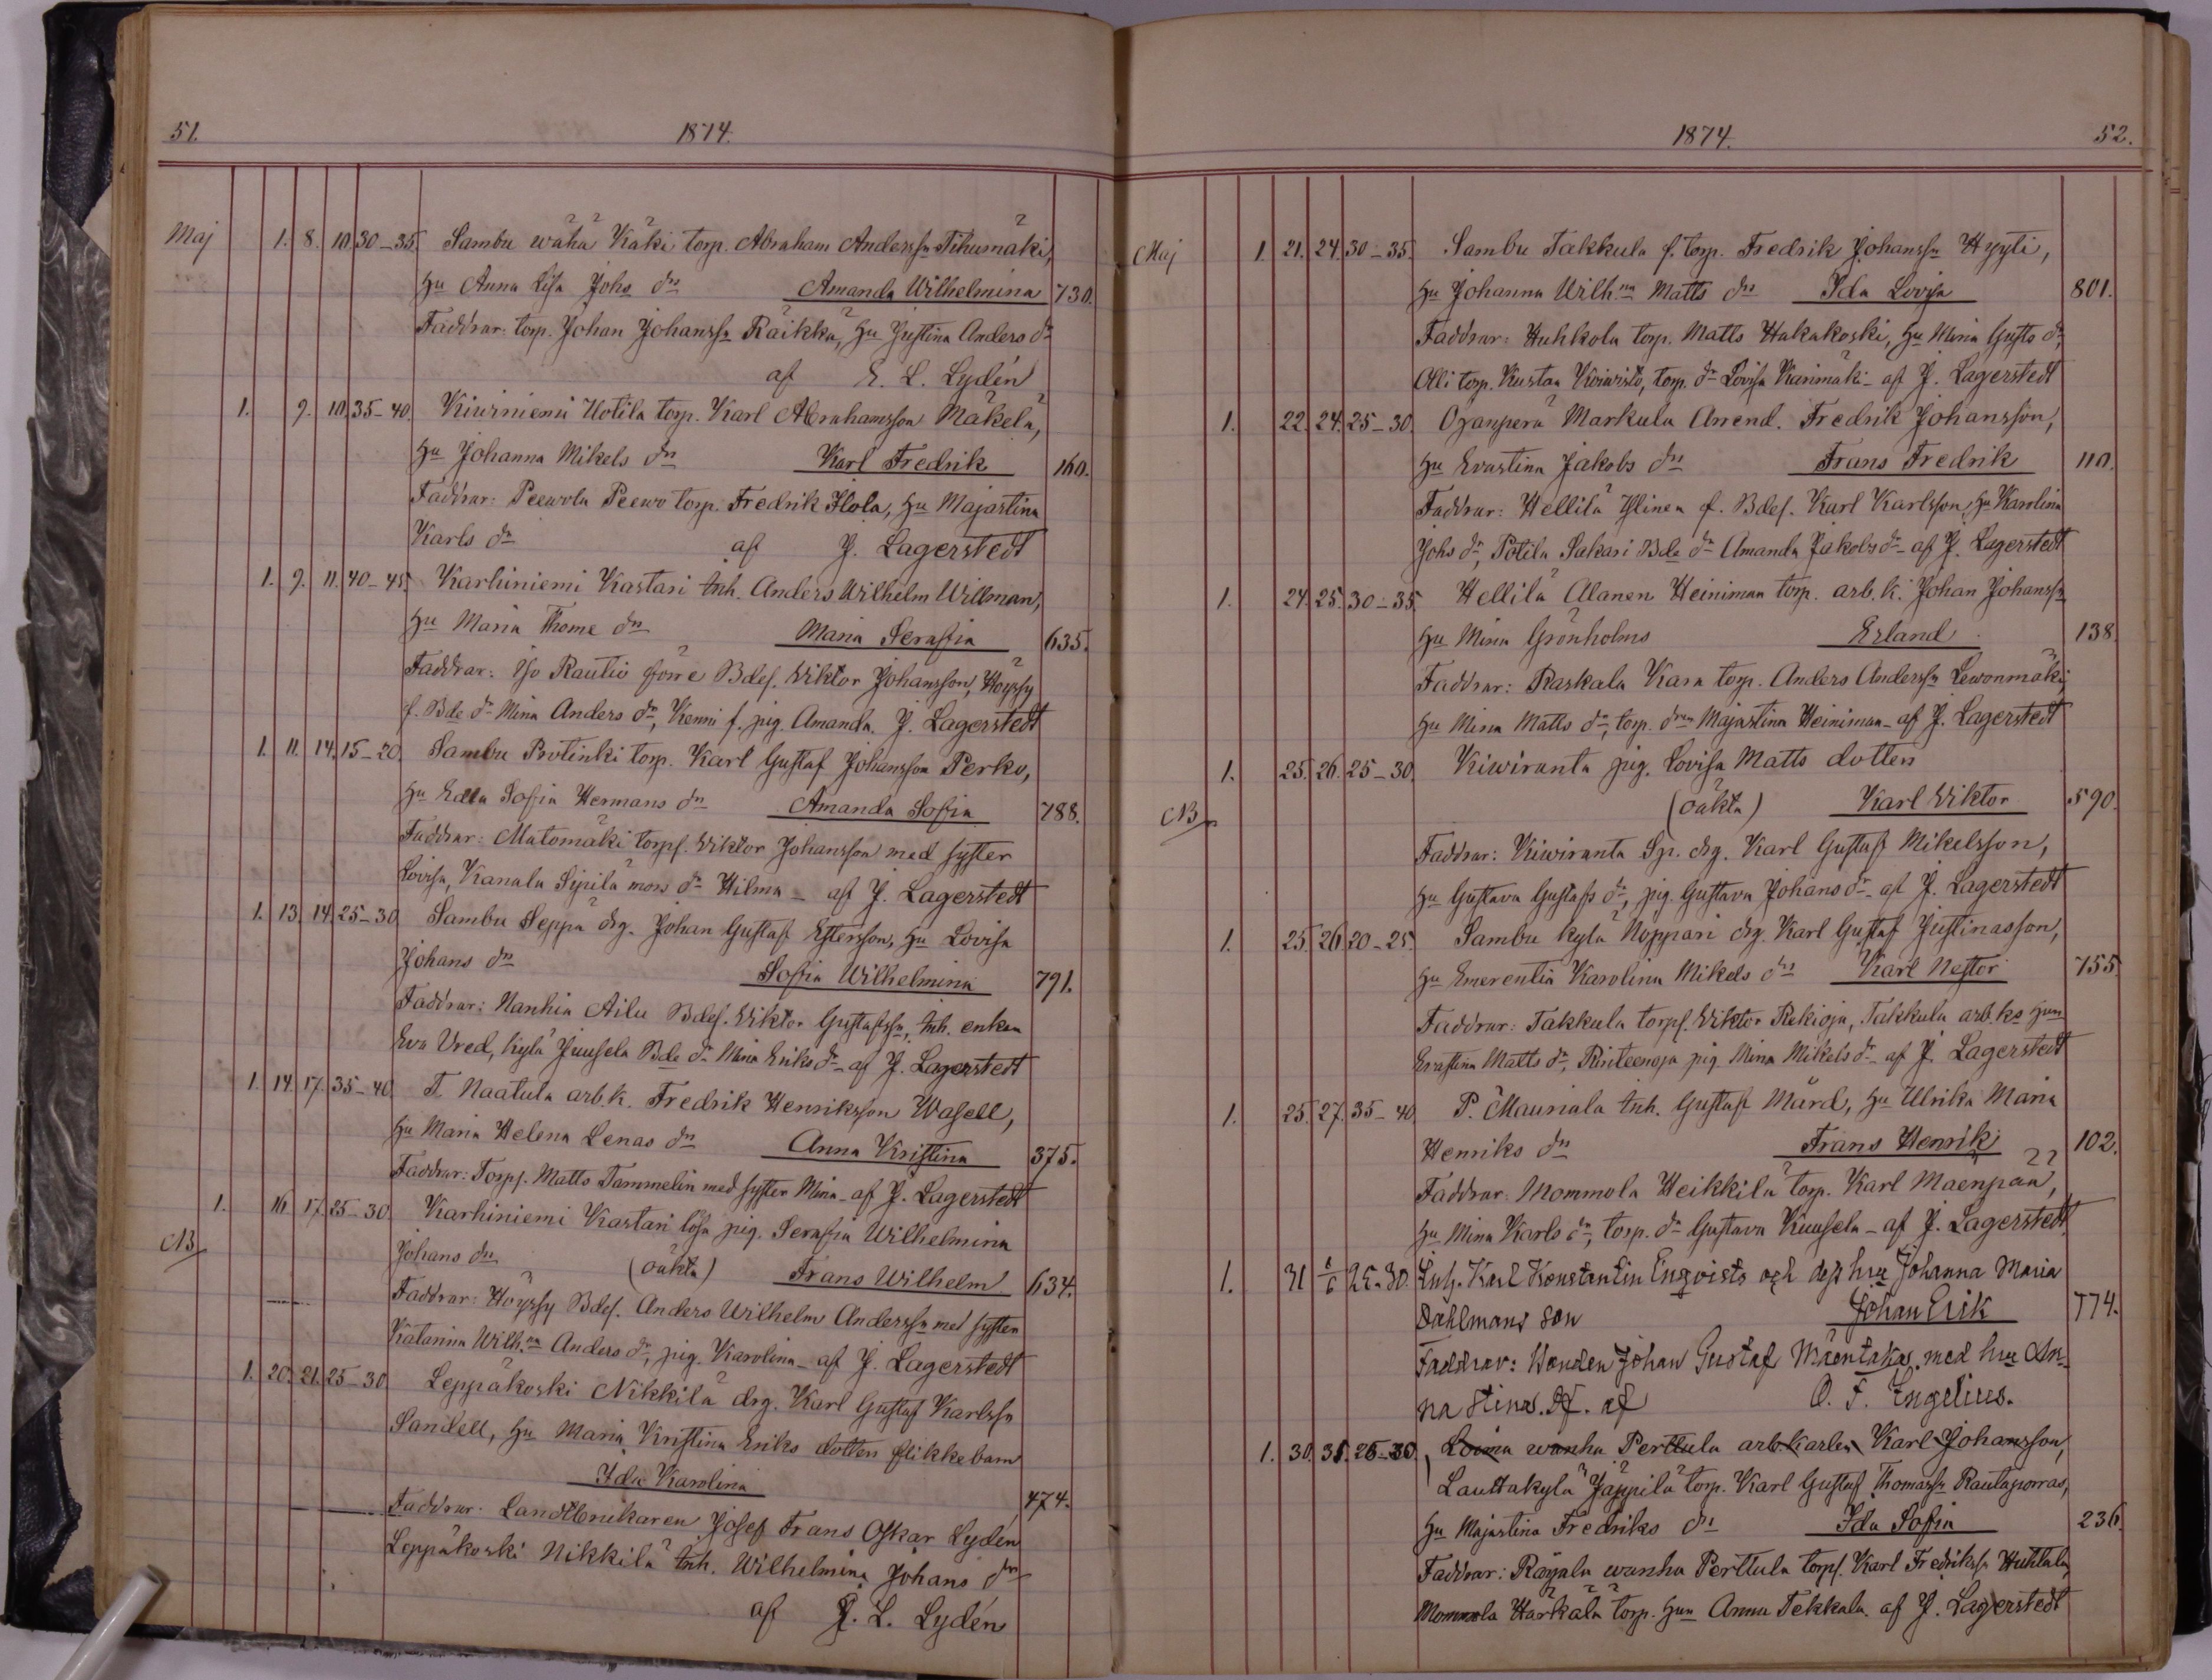 51. 1874.
Maj 1. 8. 10. 30-35. Sambu wähä Käki torp. Abraham Anderssn Tihumäki,
Hu Anna Lisa Johs dn Amanda Wilhelmina 730.
Faddrar: torp. Johan Johanssn Räikkä, Hu Justina Anders dr
af E. L. Lydén
1. 9. 10. 35-40. Kiwiniemi Uotila torp. Karl Abrahamsson Mäkelä,
Hu Johanna Mikels dn Karl Fredrik 160.
Faddrar: Peewola Peewo torp. Fredrik Ilola, Hu Majastina
Karls dn af J. Lagerstedt
1. 9. 11. 40-45. Karhiniemi Kastari Inh. Anders Wilhelm Willman,
Hu Maria Thome dn Maria Serafia 635.
Faddrar: Iso Rautio förre Bdes. Viktor Johansson, Höyssy
f. Bde dr Mina Anders dr, Kenni f. pig. Amanda. J. Lagerstedt
1. 11. 14. 15-20. Sambu Protinki torp. Karl Gustaf Johansson Perko,
Hu Edla Sofia Hermans dn Amanda Sofia 788.
Faddrar: Matomäki torps. Viktor Johansson med syster
Lovisa, Kanala Sipilä mors dr Hilma - af J. Lagerstedt
1. 13. 14. 25-30. Sambu Seppä drg. Johan Gustaf Estersson, Hu Lovisa
Johans dn Sofia Wilhelmina 791.
Faddrar: Nanhia Ailu Bdes. Viktor Gustafssn, Inh. enkan
Eva Vred, Kylä Juusela Bde dr Mina Eriks dr - af J. Lagerstedt
1. 14. 17. 35-40. T. Naatula arb.k. Fredrik Henriksson Wasell,
Hu Maria Helena Lenas dn Anna Kristina 375.
Faddrar: Torps. Matts Tammelin med syster Mina - af J. Lagerstedt
1. 16. 17. 25-30. Karhiniemi Kastari lösa pig. Serafia Wilhelmina
NB Johans dn (oäkta) Frans Wilhelm 634.
Faddrar: Höyssy Bdes. Anders Wilhelm Anderssn med syster
Katarina Wilh.na Anders dr, pig. Karolina - af J. Lagerstedt
1. 20. 21. 25-30 Leppäkoski Nikkilä drg. Karl Gustaf Karlssn
Sandell, Hu Maria Kristina Eriks dotten flikkebarn
Ida Karolina 474.
Faddrar: Landtbrukaren Josef Frans Oskar Lydén
Leppäkoski Nikkilä Inh. Wilhelmina Johans dn
af E. L. Lydén
1874. 52.
Maj 1. 21. 24. 30-35. Sambu Takkula f. torp. Fredrik Johanssn Hyyti,
Hu Johanna Wilh.na Matts dn Ida Lovisa 801.
Faddrar: Huhkola torp. Matts Hakakoski, Hu Mina Gusts dr,
Olli torp. Kustaa Koiwisto, torp. dr Lovisa Karimäki - af J. Lagerstedt
1. 22. 24. 25-30. Ojanperä Markula Arrend. Fredrik Johansson,
Hu Evastina Jakobs dn Frans Fredrik 110.
Faddrar: Hellilä Ylinen f. Bdes. Karl Karlsson, Hu Karolina
Johs dr, Potila Sakari Bde dr Amanda Jakobs dr - af J. Lagerstedt
1. 24. 25. 30-35. Hellilä Alanen Heiniman torp. arb.k. Johan Johanssn
Hu Mina Grönholms Erland 138.
Faddrar: Raskala Kara torp. Anders Anderssn Lewonmäki,
Hu Mina Matts dr, torp. dren Majastina Heiniman - af J. Lagerstedt
1. 25. 26. 25-30. Kiwiranta pig. Lovisa Matts dotten
NB (oäkta) Karl Viktor 590.
Faddrar: Kiwiranta Sp. drg. Karl Gustaf Mikelsson,
Hu Gustava Gustafs dr, pig. Gustava Johans dr - af J. Lagerstedt
1. 25. 26. 20-25. Sambu kylä Noppari drg. Karl Gustaf Justinasson,
Hu Emerentia Karolina Mikels dns Karl Nestor 755.
Faddrar: Takkula torps. Viktor Rekioja, Takkula arb.ks Hun
Evastina Matts dr, Rinteenoja pig. Mina Mikels dr - af J. Lagerstedt
1. 25. 27. 35-40. P. Mauriala Inh. Gustaf Mård, Hu Ulrika Maria
Henriks dn Frans Henrik 102.
Faddrar: Mommola Heikkilä torp. Karl Mäenpää,
Hu Mina Karls dr, torp. dr Gustava Kuusela - af J. Lagerstedt
1. 31 1/6 25-30. Inh. Karl Konstantin Enqvists och dess hru Johanna Maria
Dahlmans son Johan Erik 774.
Faddrar: Bonden Johan Gustaf Mäentakas. med hru An-
na Stina. Df. af O. F. Engelius.
1. 30. 31. 25-30. Loima wanha Perttula arb.karlen Karl Johansson,
Lauttakylä Jäppilä torp. Karl Gustaf Thomassn Rautaporras,
Hu Majastina Fredriks dn Ida Sofia 236.
Faddrar: Raijala wanha Perttula torps. Karl Fredrikssn Huhtala,
Mommola Härkälä torp. Hun Anna Tekkala. af J. Lagerstedt